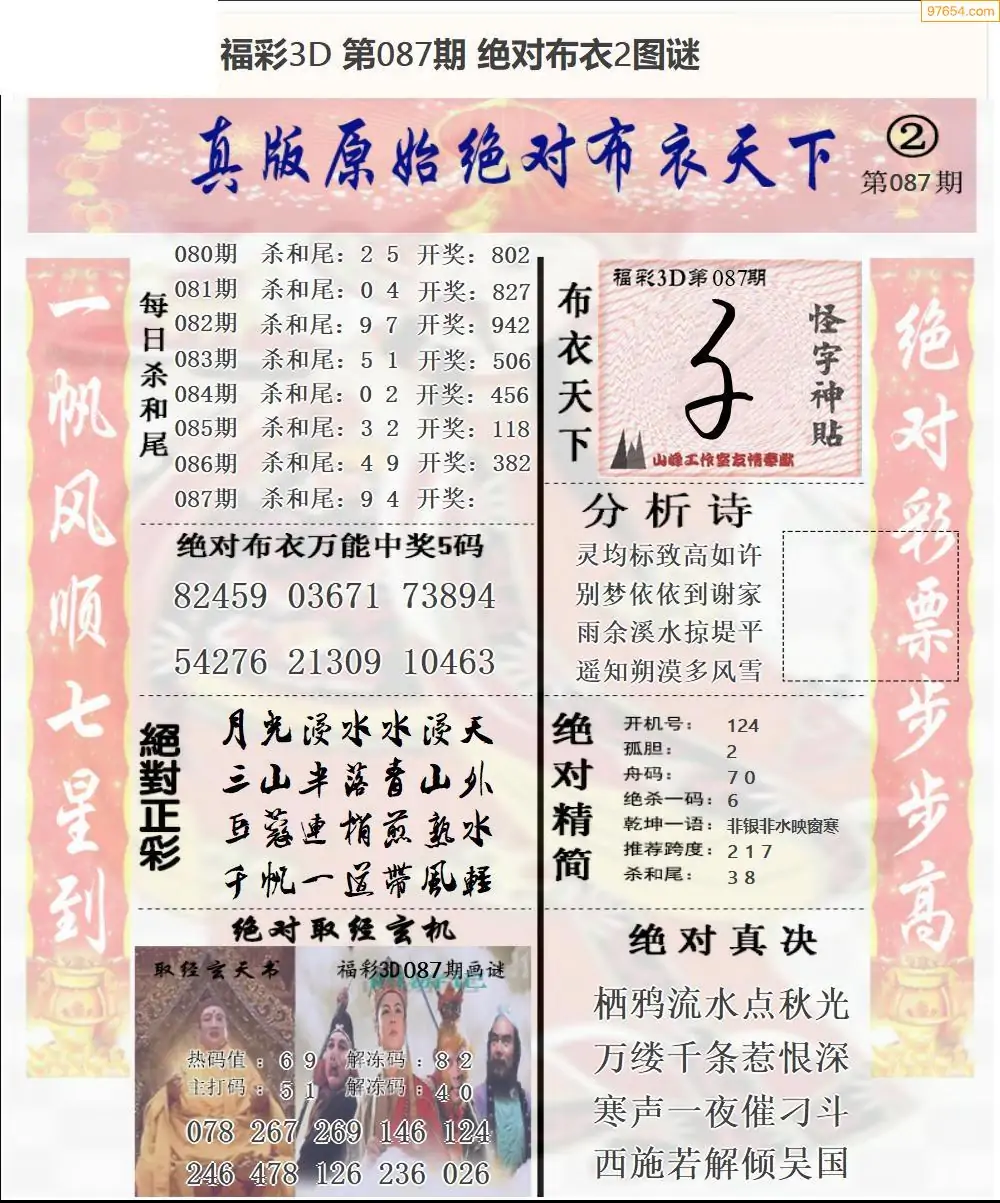 97654.com
福彩3D 第087期 绝对布衣2图谜
真版原始绝对布衣天下
②
第087期
一帆风顺七星到
每日杀和尾
080期 杀和尾：2 5 开奖：802
081期 杀和尾：0 4 开奖：827
082期 杀和尾：9 7 开奖：942
083期 杀和尾：5 1 开奖：506
084期 杀和尾：0 2 开奖：456
085期 杀和尾：3 2 开奖：118
086期 杀和尾：4 9 开奖：382
087期 杀和尾：9 4 开奖：
绝对布衣万能中奖5码
82459 03671 73894
54276 21309 10463
絕對正彩
月光浸水水浸天
三山半落青山外
豆蔻連梢煎熟水
千帆一道帶風輕
绝对取经玄机
取经玄天书
福彩3D087期画谜
热码值：6 9 解冻码：8 2
主打码：5 1 解冻码：4 0
078 267 269 146 124
246 478 126 236 026
布衣天下
福彩3D第087期
怪字神貼
山峰工作室友情奉献
分析诗
灵均标致高如许
别梦依依到谢家
雨余溪水掠堤平
遥知朔漠多风雪
绝对精简
开机号： 124
孤胆： 2
舟码： 7 0
绝杀一码：6
乾坤一语：非银非水映窗寒
推荐跨度：2 1 7
杀和尾： 3 8
绝对真决
栖鸦流水点秋光
万缕千条惹恨深
寒声一夜催刁斗
西施若解倾吴国
绝对彩票步步高